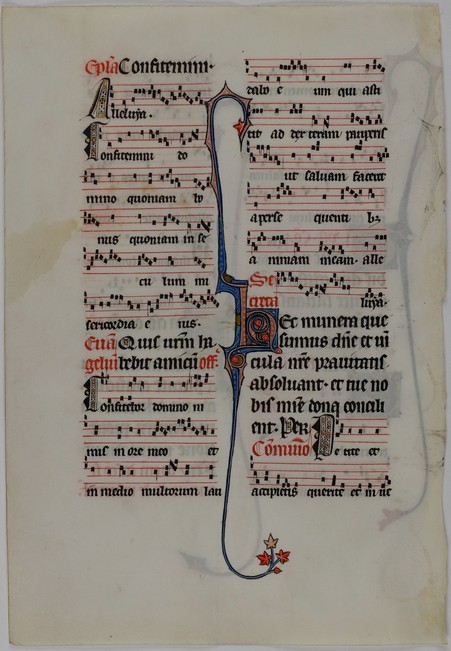 Epła Confitemini·
Alleluya·
Confitemini do
mino quoniam bo
nus quoniam in se
cu lum mi
sericordia e ius·
Euã Quis urm̃ ha
gelium bebit amicũ off·
Confitebor domino ni
mis in ore meo et
in medio multorum lau
dabo e um qui asti
tit ad dexteram pauperis
ut saluam faceret
a perse quenti bz
a nimam meam· alle
Se
creta luya·
Hec munera que
sumus dñe et uĩ
cula nr̃e prauitatis
absoluant· et tue no
bis mĩe dona concili
ent· Per·
Cõmunio Petite et
accipietis querite et in ue